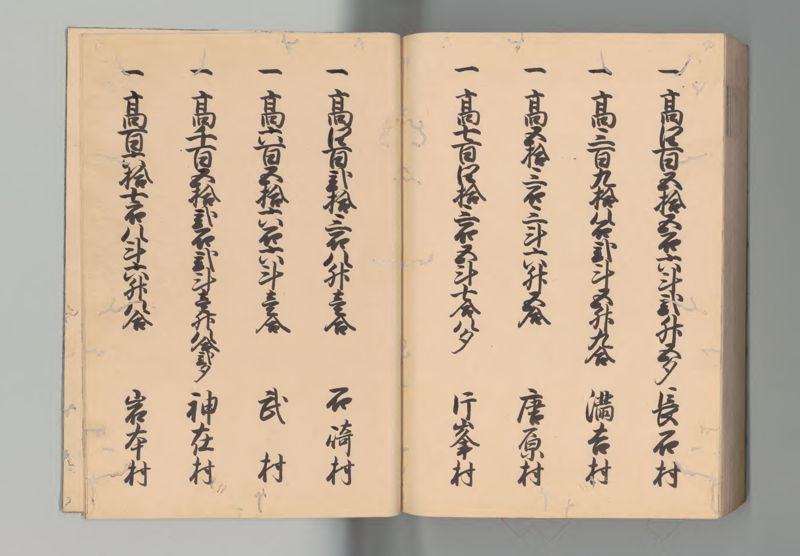 一 高四百五拾五石六斗弐升五夕 長石村
一 高三百九拾八石弐斗五升九合 満吉村
一 高五拾三石三斗六升五合 唐原村
一 高七百四拾三石五斗七合八夕 片峯村
一 高四百弐拾三石八升壱合 石崎村
一 高六百五拾六石六斗壱合 武村
一 高千百五拾弐石弐斗壱升八合弐夕 神在村
一 高百六拾七石八斗六升八合 岩本村